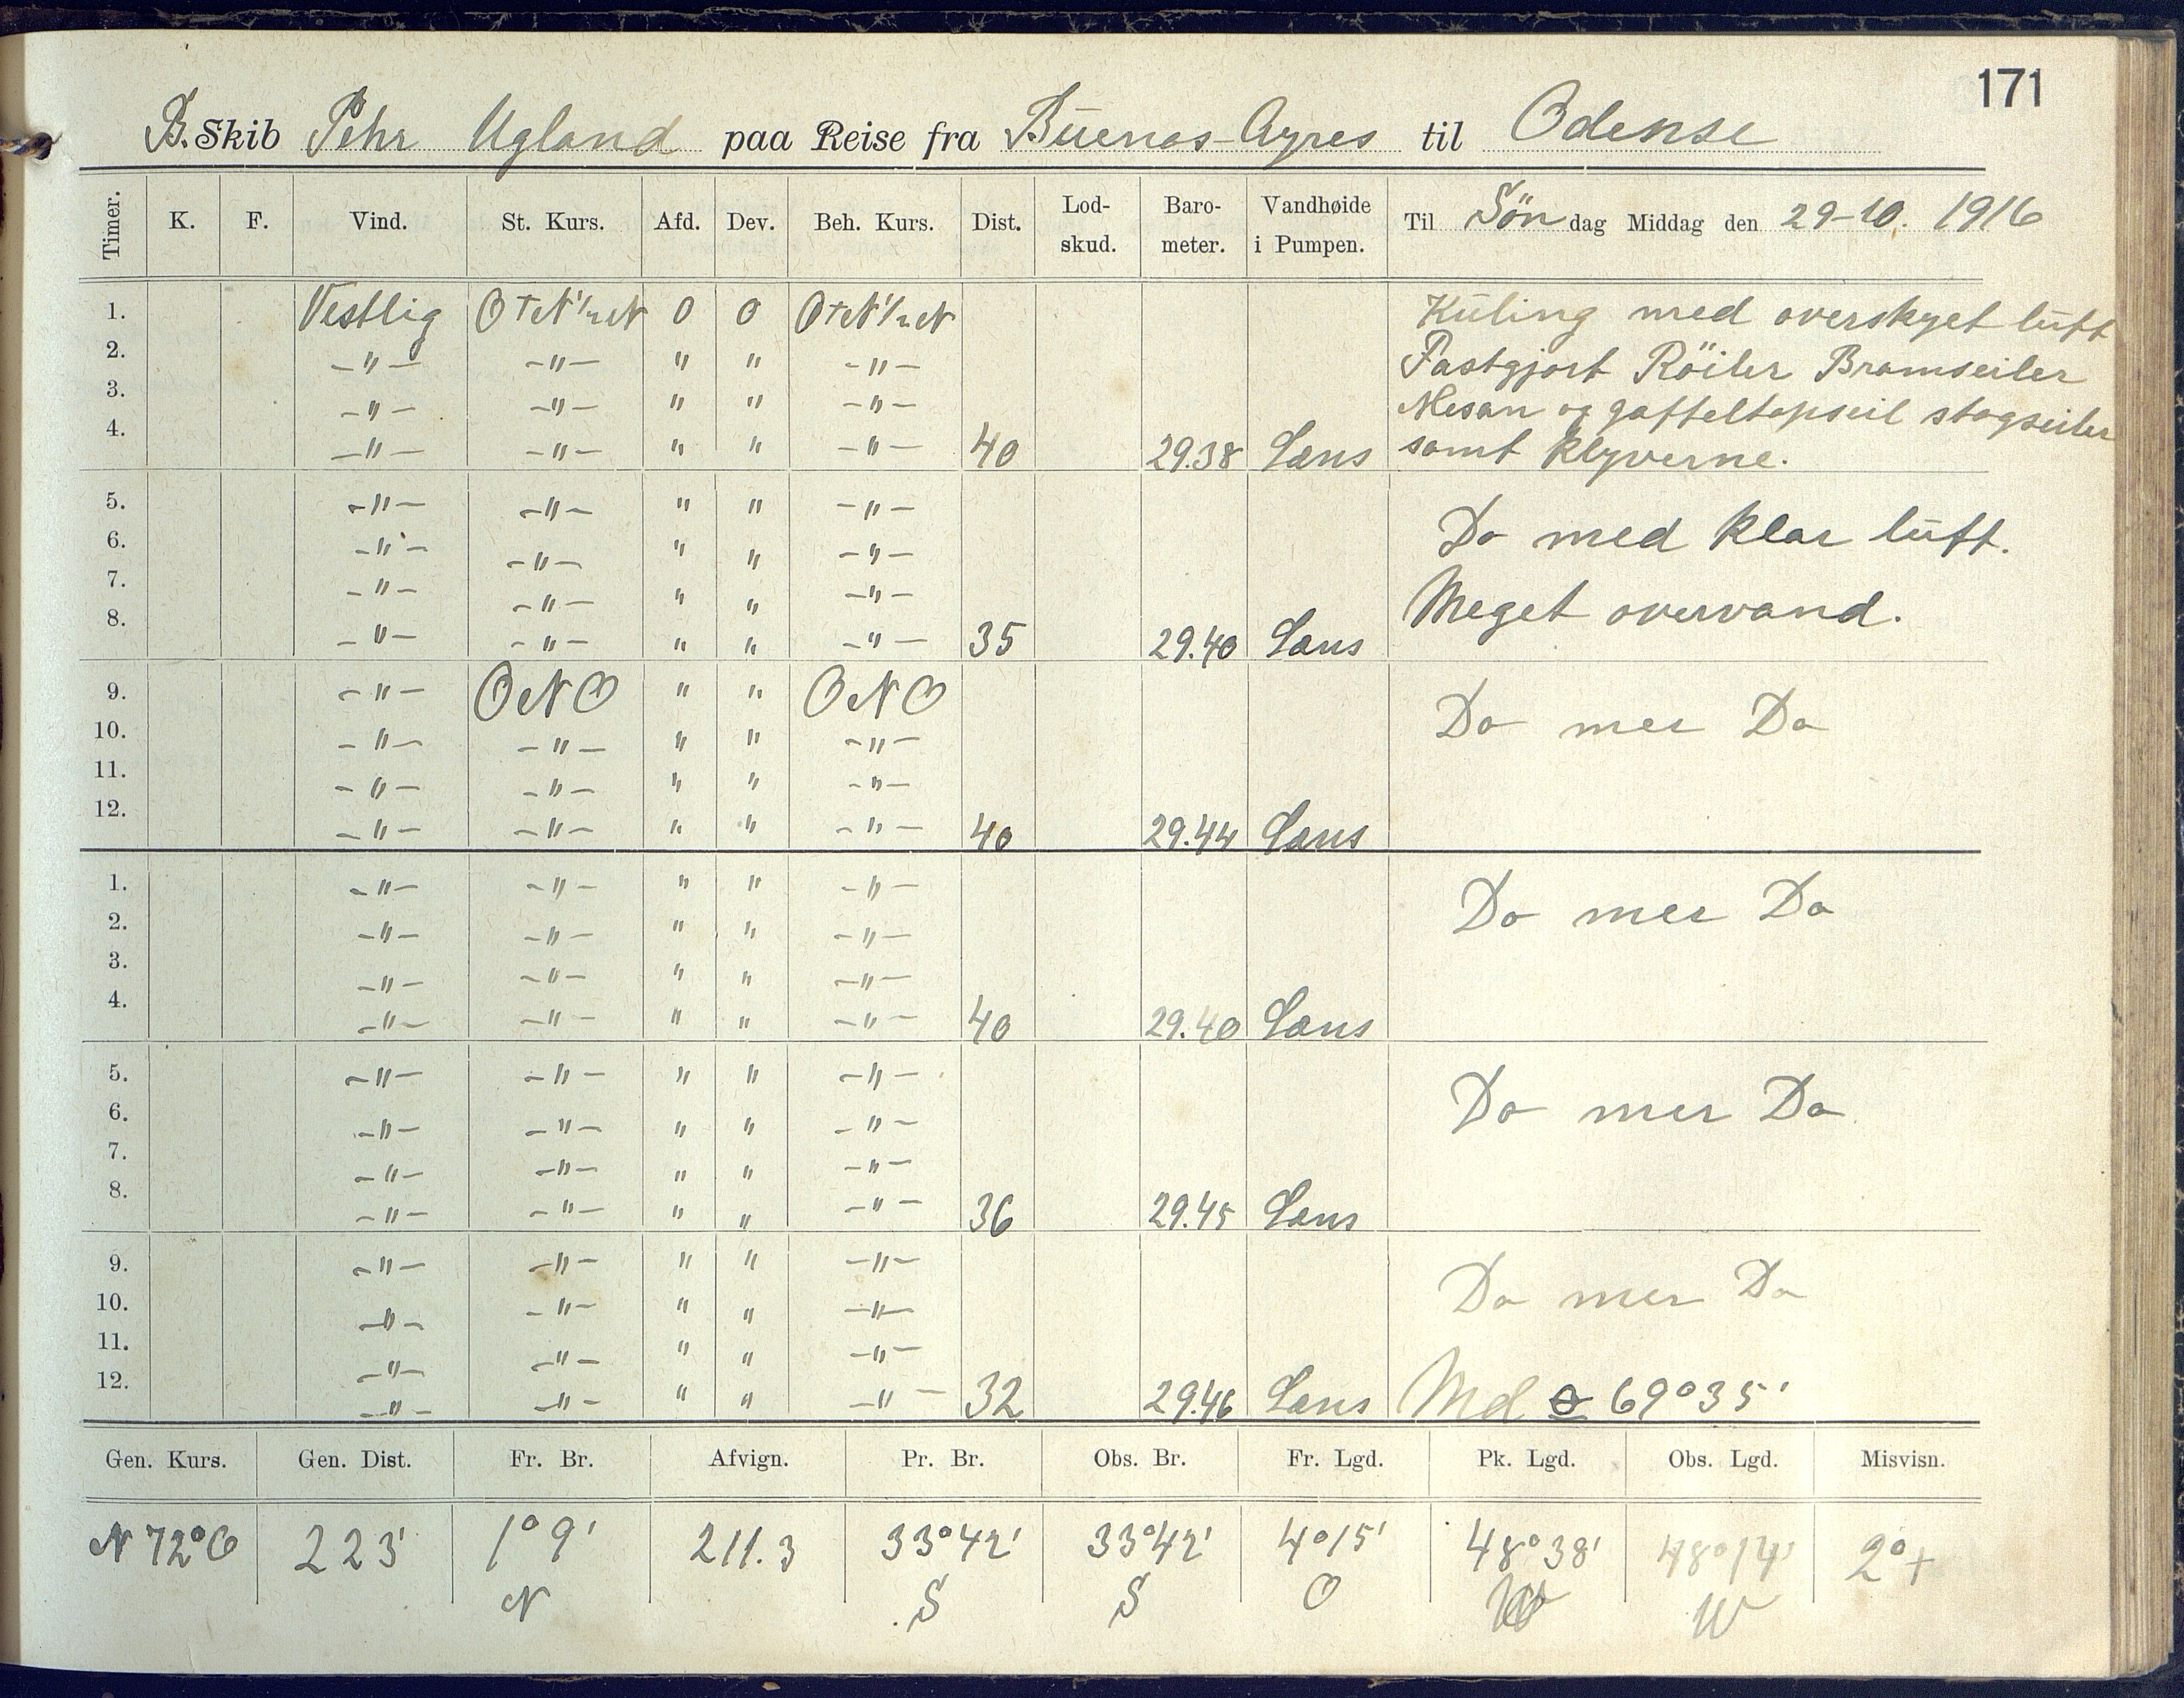 171
B. Skib Pehr Ugland paa Reise fra Buenos-Ayres til Odense
Timer. K. F. Vind. St. Kurs. Afd. Dev. Beh. Kurs. Dist. Lod-skud. Baro-meter. Vandhøide i Pumpen. Til Søndag Middag den 29-10. 1916
1. Vestlig O t N 1/2 N 0 0 O t N 1/2 N Kuling med overskyet luft
2. -"- -"- " " -"- Fastgjort Röiler Bramseiler
3. -"- -"- " " -"- Mesan og gaffeltopseil stagseiler
4. -"- -"- " " -"- 40 29.38 Læns samt Klyverne.
5. -"- -"- " " -"- Do med klar luft.
6. -"- -"- " " -"-
7. -"- -"- " " -"- Meget overvand.
8. -"- -"- " " -"- 35 29.40 Læns
9. -"- ONO " " ONO Do mer Do
10. -"- -"- " " -"-
11. -"- -"- " " -"-
12. -"- -"- " " -"- 40 29.44 Læns
1. -"- -"- " " -"- Do mer Do
2. -"- -"- " " -"-
3. -"- -"- " " -"-
4. -"- -"- " " -"- 40 29.40 Læns
5. -"- -"- " " -"- Do mer Do
6. -"- -"- " " -"-
7. -"- -"- " " -"-
8. -"- -"- " " -"- 36 29.45 Læns
9. -"- -"- " " -"- Do mer Do
10. -"- -"- " " -"-
11. -"- -"- " " -"-
12. -"- -"- " " -"- 32 29.46 Læns Md ⊙ 69°35'
Gen. Kurs. Gen. Dist. Fr. Br. Afvign. Pr. Br. Obs. Br. Fr. Lgd. Pk. Lgd. Obs. Lgd. Misvisn.
N 72° O 223' 1°9' 211.3 33°42' 33°42' 4°15' 48°38' 48°14' 2°+
N S S O W W